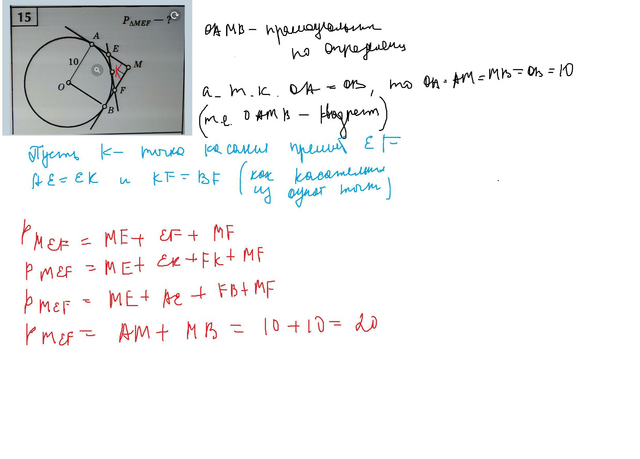 15
P△MEF – ?
A
E
10
K
M
O
F
B
OAMB – прямоугольник
по определению
а т.к. OA = OB, то OA = AM = MB = OB = 10
(т.е. OAMB – квадрат)
Пусть K – точка касания прямой EF
AE = EK и KF = BF (как касательные
из одной точки)
P MEF = ME + EF + MF
P MEF = ME + EK + FK + MF
P MEF = ME + AE + FB + MF
P MEF = AM + MB = 10 + 10 = 20